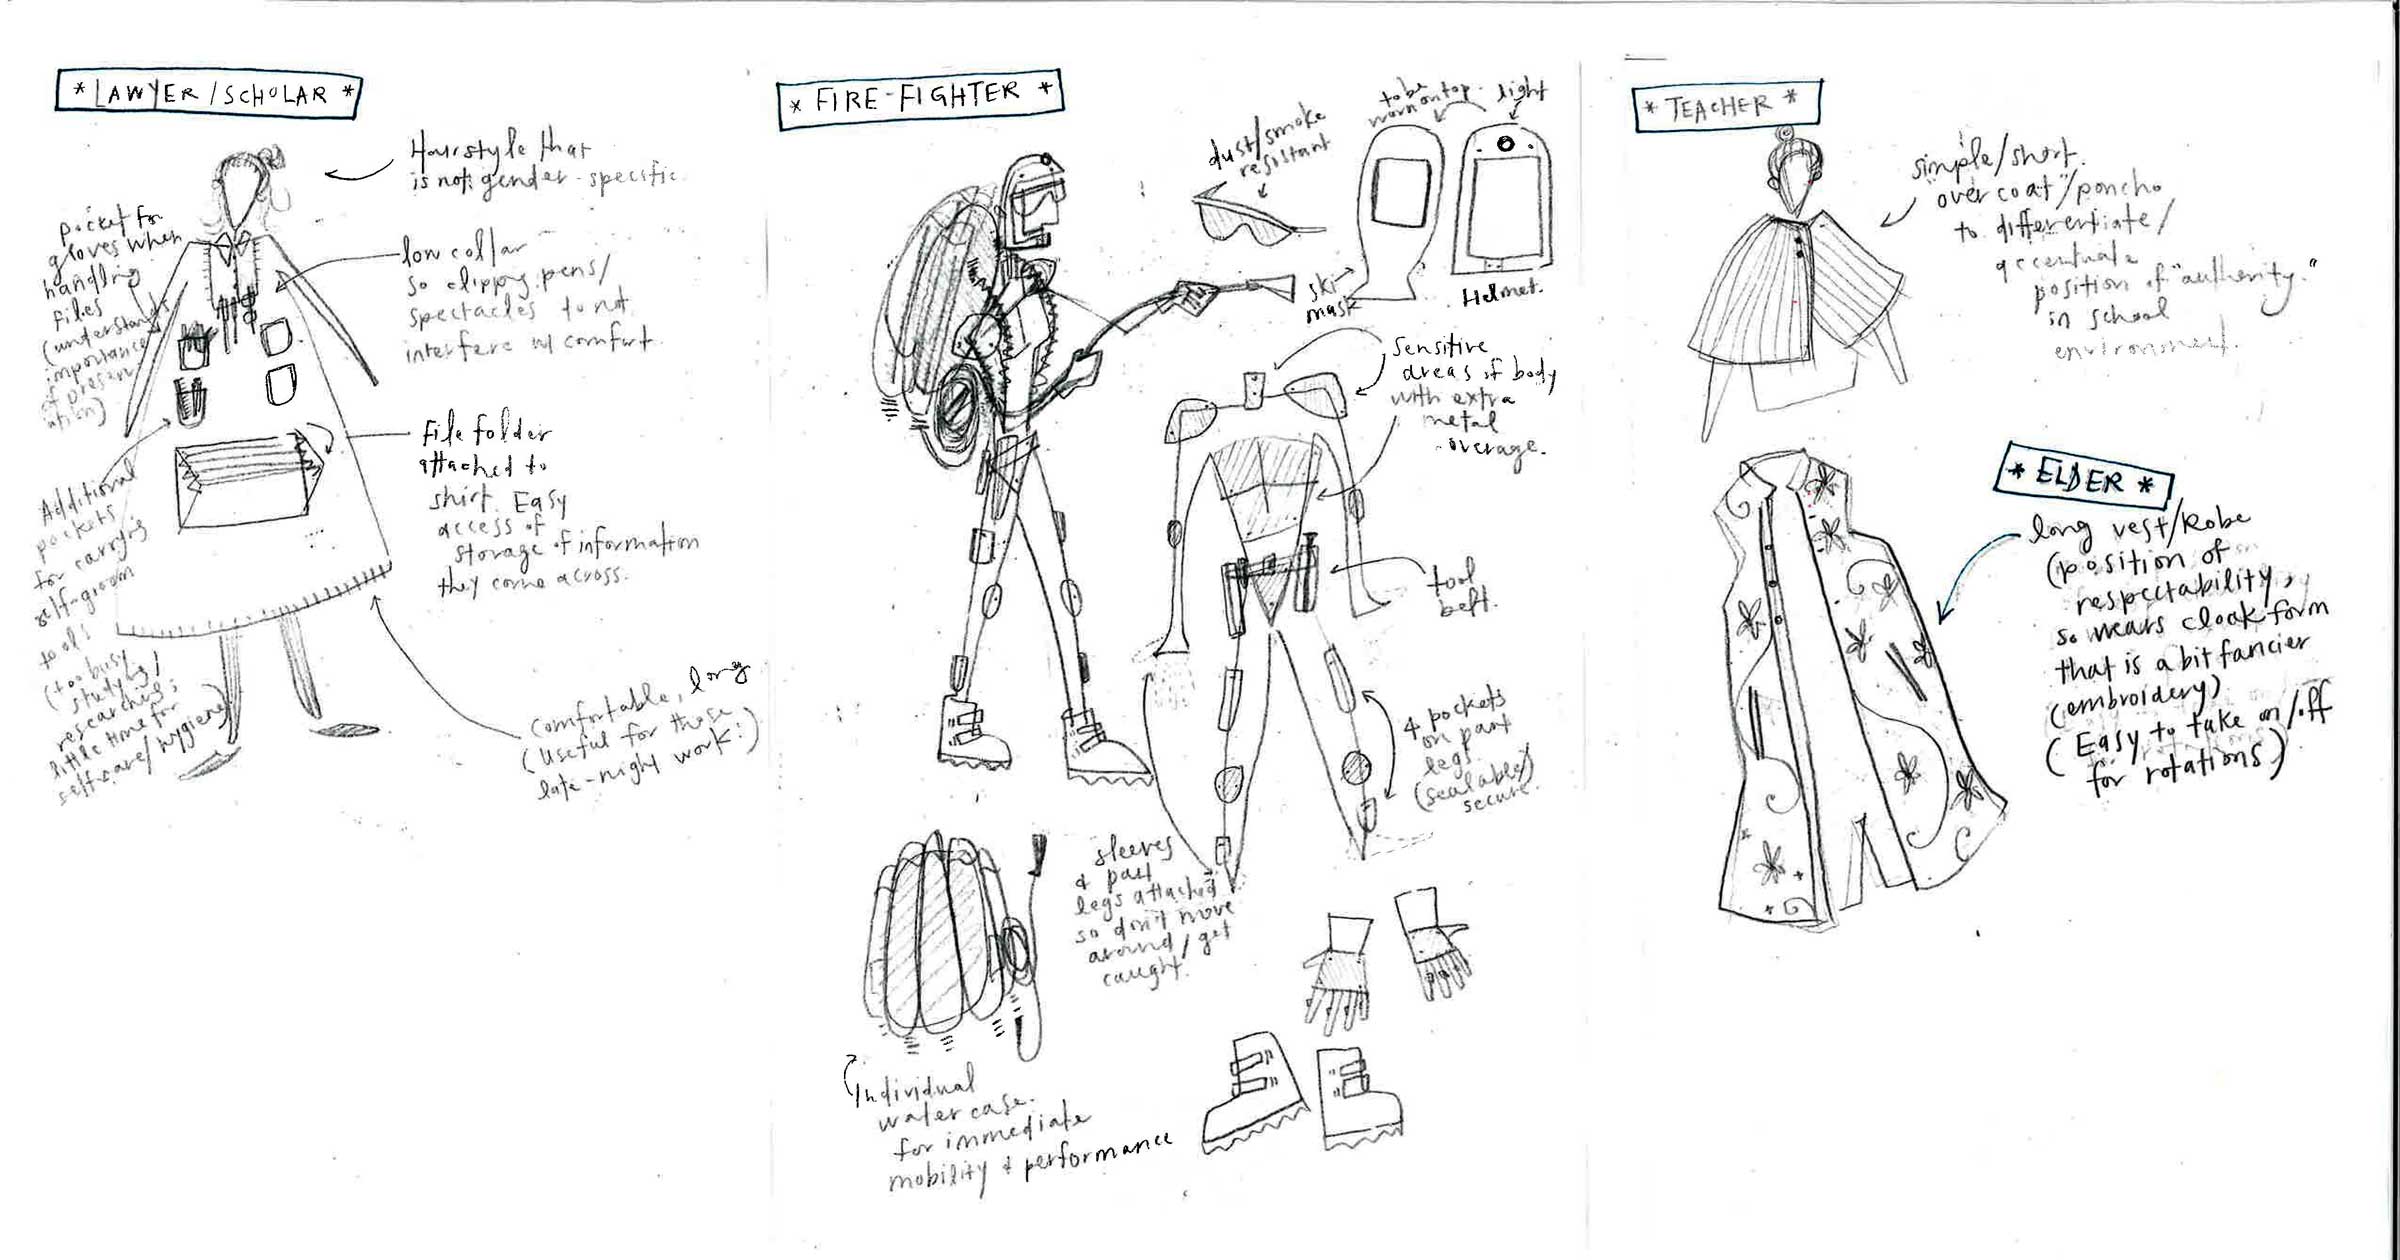 * LAWYER/SCHOLAR *
Hairstyle that
is not gender-specific.
pocket for
gloves when
handling
files
(understands
importance
of present
ation)
low collar
so clipping pens/
spectacles to not
interfere w/ comfort.
File folder
attached to
shirt. Easy
access of
storage of information
they come across.
Additional
pockets
for carrying
self-groom
tools
(too busy
studying/
researching,
little time for
self-care/hygiene)
comfortable, long
(useful for those
late-night work!)
* FIRE-FIGHTER *
dust/smoke
resistant
to be
worn on top.
light
ski
mask
Helmet.
Sensitive
areas of body
with extra
metal
overage.
tool
belt.
4 pockets
on pant
legs
(sealable)
secure.
sleeves
& pant
legs attached
so don't move
around/get
caught.
Individual
water case.
for immediate
mobility & performance
* TEACHER *
simple/short
"overcoat"/poncho
to differentiate/
accentuate
position of "authority."
in school
environment.
* ELDER *
long vest/Robe
(position of
respectability,
so wears cloak form
that is a bit fancier
(embroidery)
(Easy to take on/off
for rotations)